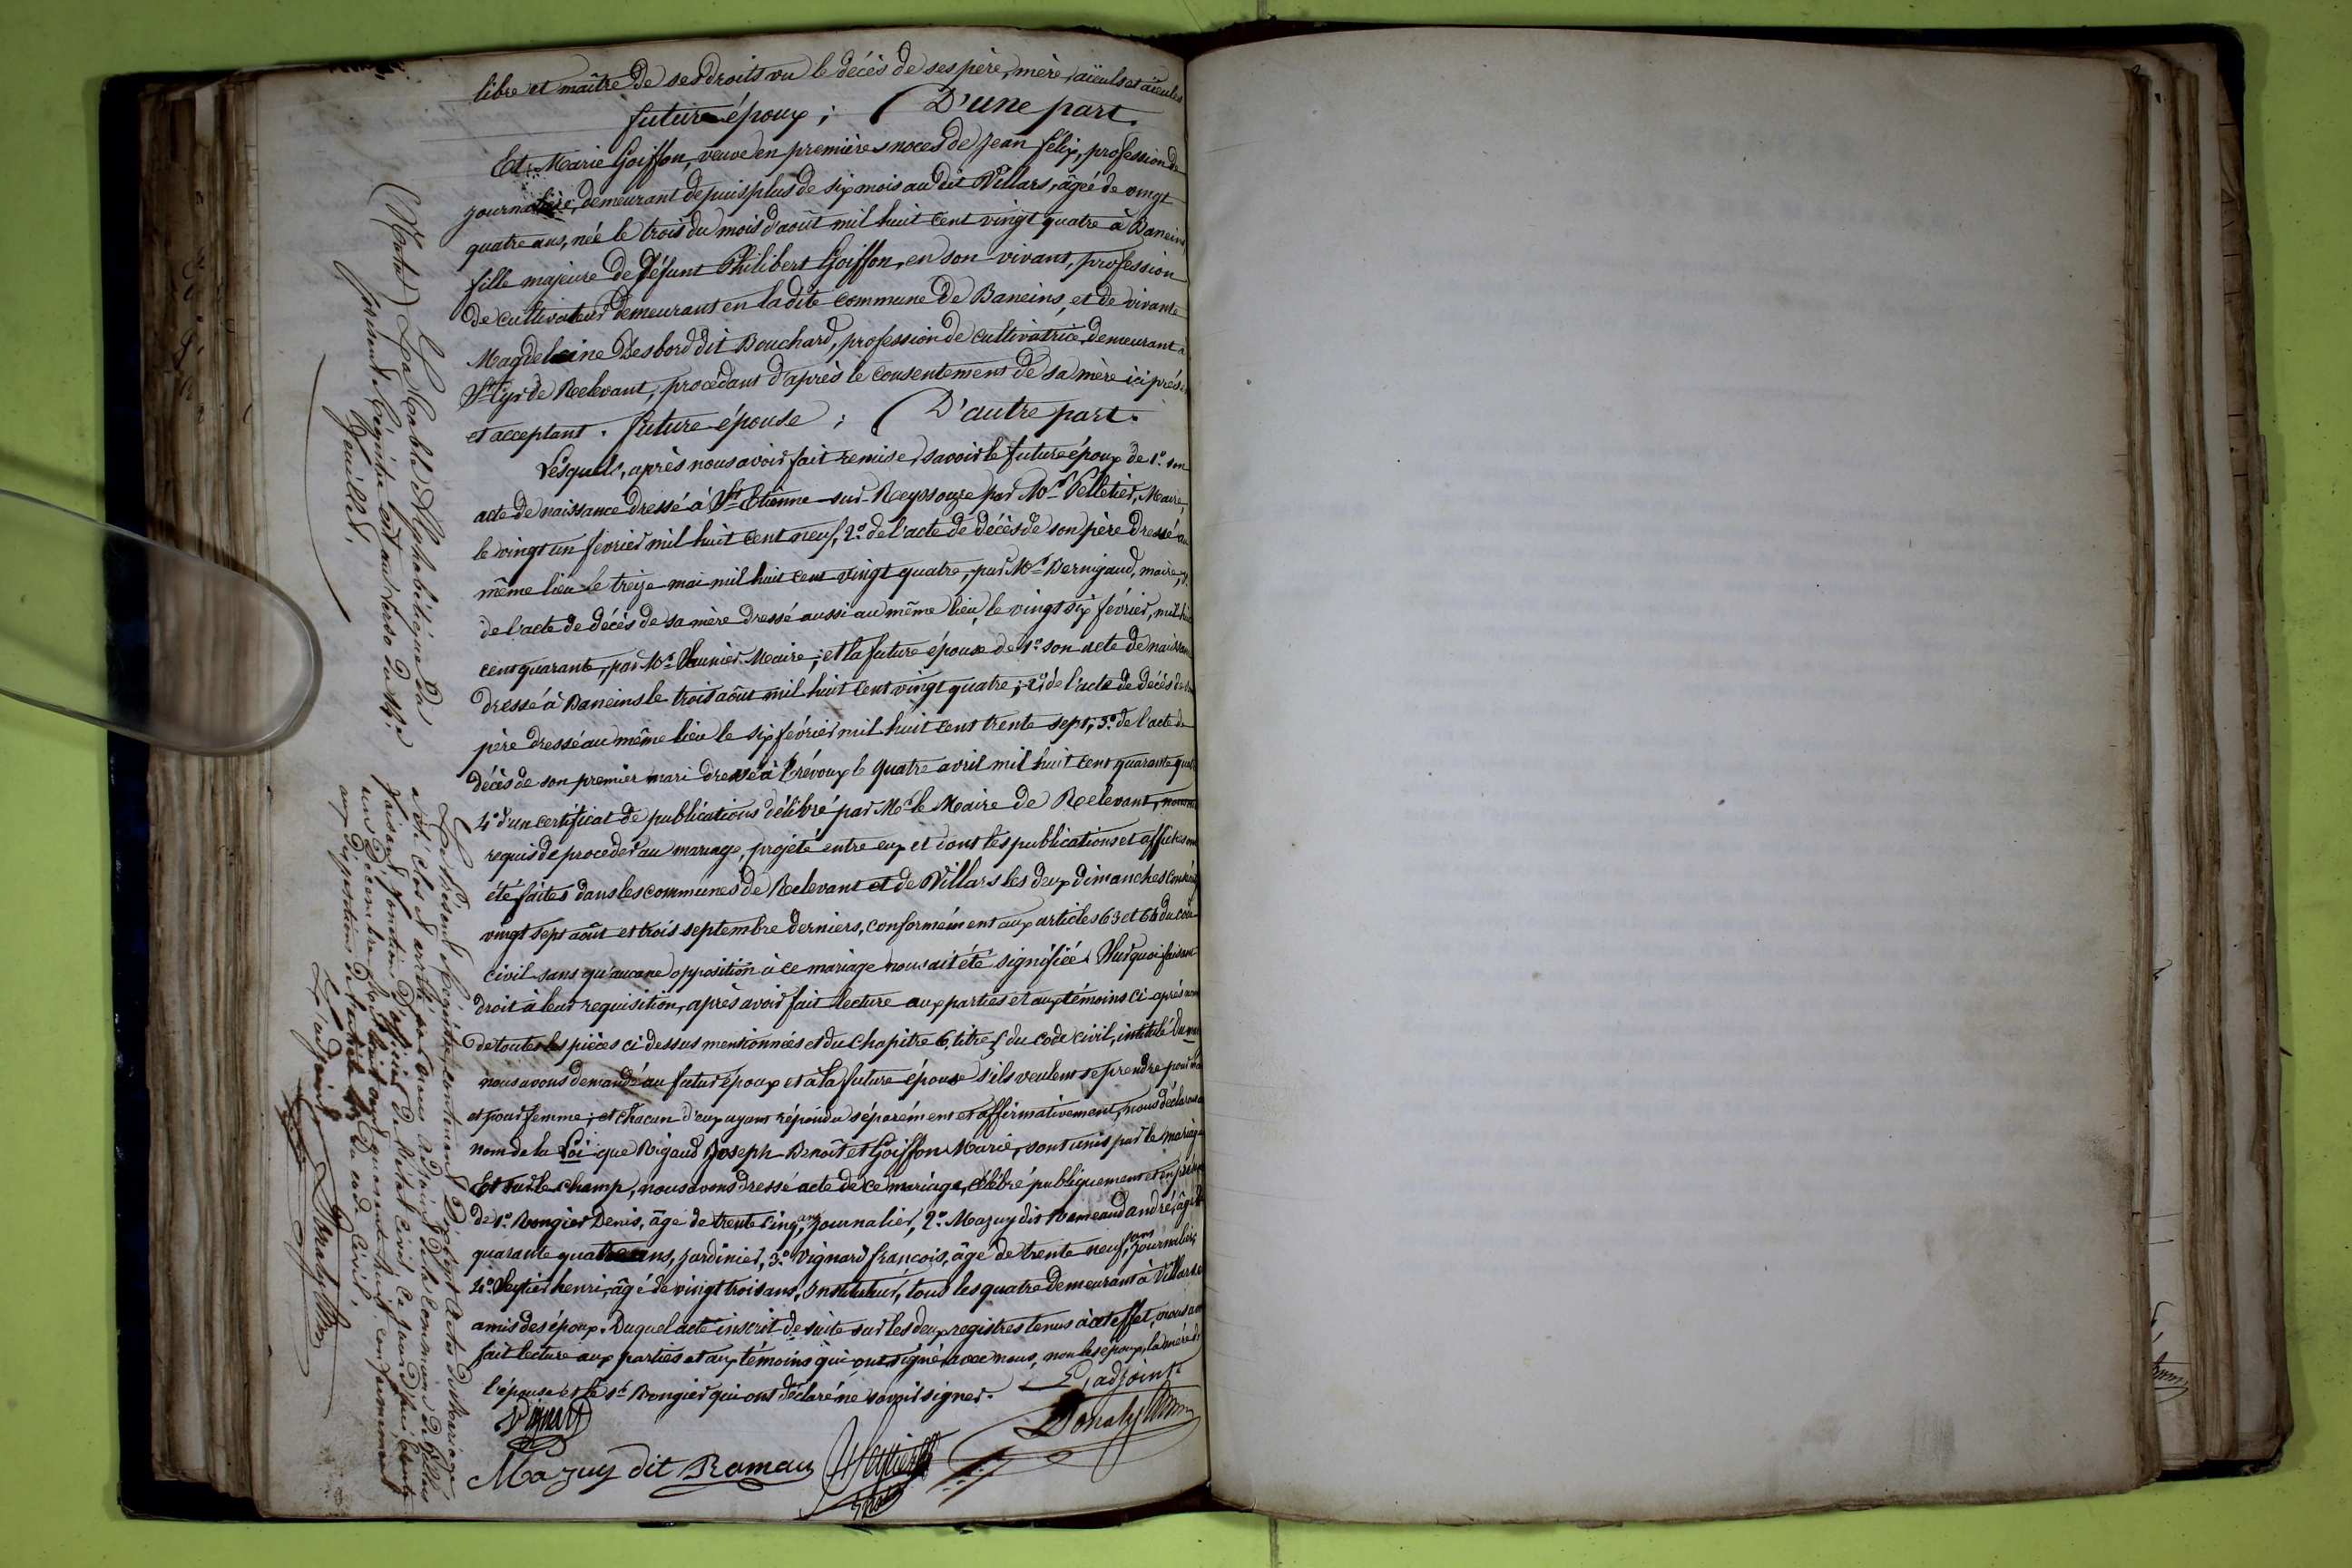 libre et maître de ses droits vu le décès de ses père, mère, aïeuls et aïeules
future époux ; D'une part.
Et Marie Goiffon, veuve en premières noces de Jean Félix, profession de
journalière, demeurant depuis plus de six mois au dit Villars, âgée de vingt
quatre ans, née le trois du mois d'août mil huit cent vingt quatre à Baneins,
fille majeure de défunt Philibert Goiffon, en son vivant, profession
de cultivateur demeurant en ladite commune de Baneins, et de vivante
Magdeleine Desbord dit Bouchard, profession de cultivatrice, demeurant à
St Cyr de Relevant, procédant d'après le consentement de sa mère ici prés
et acceptant. future épouse ; D'autre part.
Lesquels, après nous avoir fait remise, savoir le future époux de 1º. son
acte de naissance dressé à St Etienne-sur-Reyssouze par Mr. Pelletier, Maire,
le vingt un février mil huit cent neuf, 2º. de l'acte de décès de son père dressé au
même lieu le treize mai mil huit cent vingt quatre, par Mr. Bernigaud, maire,
de l'acte de décès de sa mère dressé aussi au même lieu, le vingt six février, mil huit
cent quarante, par Mr. Maire ; et la future épouse de 1º. son acte de naissance
dressé à Baneins le trois août mil huit cent vingt quatre ; 2º. de l'acte de décès de son
père dressé au même lieu le six février mil huit cent trente sept, 3º. de l'acte de
décès de son premier mari dressé à Trévoux le quatre avril mil huit cent quarante quatre
4º. d'un certificat de publications délibré par Mr. le Maire de Relevant, nous ont
requis de procéder au mariage, projeté entre eux et dont les publications et affiches ont
été faites dans les communes de Relevant et de Villars les deux dimanches consécutifs
vingt sept août et trois septembre derniers, conformément aux articles 63 et 64 du code
civil sans qu'aucune opposition à ce mariage nous ait été signifiée. Sur quoi faisant
droit à leur requisition, après avoir fait lecture aux parties et aux témoins ci-après nom
de toutes les pièces ci dessus mentionnées et du chapitre 6, titre 5 du code civil, intitulé du mar
nous avons demandé au futur époux et à la future épouse s'ils veulent se prendre pour mari
et pour femme ; et chacun d'eux ayant répondu séparément et affirmativement, nous déclarons au
nom de la Loi que Rigaud Joseph-Benoît et Goiffon Marie, sont unis par le mariage
Et sur le champ, nous avons dressé acte de ce mariage, célébré publiquement et en présence
de 1º. Bongier Denis, âge de trente cinq ans, journalier, 2º. Mazuy dit Rameaud andré, âgé de
quarante quatre ans, jardinier, 3º. Vignard françois, âge de trente neuf ans, journalier,
4º. henri, âgé de vingt trois ans, Instituteur, tous les quatre demeurant à Villars et
amis des époux. Duquel acte inscrit de suite sur les deux registres tenus à cet effet, nous avons
fait lecture aux parties et aux témoins qui ont signé avec nous, non les époux, la mère de
l'épouse et le st. Bongier qui ont déclaré ne savoir signer.
L'adjoint
Vignard
Mazuy dit Ramau
(Nota) La Table Alphabétique du
présent Régistre est au verso du 14e
feuillet.
Le présent Régistre, contenant Dix Sept actes de Mariage
a été clos et arrêté par nous adjoint de la Commune de Villars
faisant fonction d'officier de l'état civil ce jourd'hui trente
un décembre mil huit cent quarante huit, conformément
aux dispositions de l'article 43 du code civil.
L'adjoint